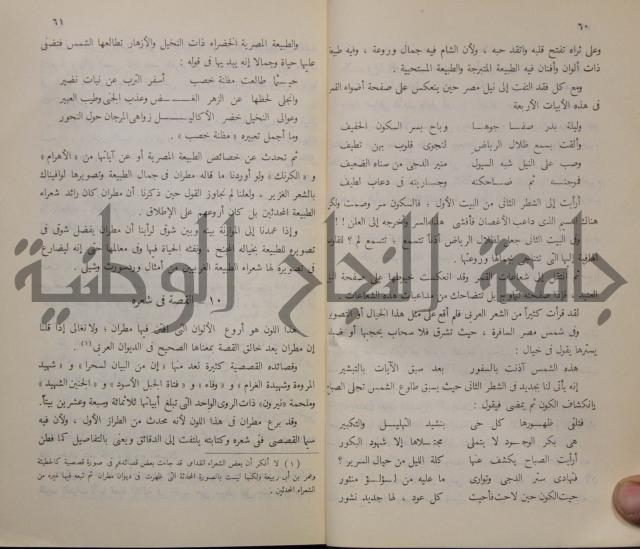 ٦٠
وعلى ثراه تفتح قلبه واتقد حبه ، ولأن الشام فيه جمال وروعة ، وفيه طبيعة
ذات ألوان وأفنان فيه الطبيعة المتبرجة والطبيعة المستحيية .
ومع كل فقد التفت إلى نيل مصر حين ينعكس على صفحة أضواء القمر
فى هذه الأبيات الأربعة
وليلة بدر صفا جوها وباح بسر السكون الحفيف
وألقت بسمع ظلال الرياض لنجوى قلوب بهن تطيف
وصب على النيل شبه السيول منير الدجى من سناه الضعيف
فوجنته ثم ضاحكته وجاريته فى دعاب لطيف
أرأيت إلى الشطر الثانى من البيت الأول : فالسكون سر وصمت ولكن
هناك النسيم الذى داعب الأغصان فأفشى هذا السر وأخرجه إلى العلن ! !
وفى البيت الثانى جعل لظلال الرياض آذاناً تتسمع ؛ تتسمع لم ؟ للقلوب
إليها التى تتناجى وروعتها .
ثم انتقل إلى شعاعات القمر وقد انعكست خيوطها على صفحة النيل
، وإذا صفحته تماوج بل تتضاحك من مداعبات هذه الشعاعات .
لقد قرأت كثيراً من الشعر العربى فلم أقع على مثل هذا الخيال أو التصوير
وفى شمس مصر السافرة ، حيث تشرق فلا سحاب يحجبها أو ضباب
يسترها يقول فى خيال :
هذه الشمس آذنت بالسفور بعد سبق الآيات بالتبشير
إنه يأتى لنا بجديد فى الشطر الثانى حيث يسبق طلوع الشمس تجلى الصباح
وانكشاف الكون ثم يمضى فيقول :
فتلقى ظهورها كل حى بنشيد التهليل والتكبير
هى بكر الوجود لا يتملى مجتلاها إلا شهود البكور
أرأيت الصباح يكشف عنها كلة الليل من حيال السرير ؟
فتهادى ستر الدجى وتوارى ما عليه من لؤلؤ منثور
حيت الكون حين لاحت فأحيت كل عود ، لها جديد نشور
٦١
والطبيعة المصرية الخضراء ذات النخيل والأزهار تطالعها الشمس فتضفى
عليها حياة وجمالا إنه يبد يها فى قوله :
حيثما طالعت مظنة خصب أسفر الترب عن نبات نضير
وانجلى لحظها عن الزهر الغض وعذب الجنى وطيب العبير
وعوالى النخيل خضر الأكاليل زواهى المرجان حول النحور
وما أجمل تعبيره « مظنة خصب » .
ثم تحدث عن خصائص الطبيعة المصرية أو عن آياتها من « الأهرام »
و « الكرنك » ولو أوردنا ما قاله مطران فى جمال الطبيعة وتصويرها لوافيناك
بالشعر الغزير ، ولعلنا لم نجاوز القول حين ذكرنا أن مطران كان رائد شعراء
الطبيعة المحدثين بل كان أروعهم على الإطلاق .
وإذا عمدنا إلى الموازنة بينه وبين شوقى لرأينا أن مطران يفضل شوقى فى
تصويره للطبيعة بخياله المجنح ، ونفثه الحياة فيها وفى معالمها حتى إنه ليضارع
فى تصويره لها شعراء الطبيعة الغربيين من أمثال وردسورث وشيلى .
١٠ – القصة فى شعره
هذا اللون هو أروع الألوان التى افتن فيها مطران ؛ ولا نغالى إذا قلنا
إن مطران يعد خالق القصة بمعناها الصحيح فى الديوان العربى (١) .
وقصائده القصصية كثيرة تعد منها « إن من البيان لسحرا » و « شهيد
المروءة وشهيدة الغرام » و « وفاء » و « فتاة الجبل الأسود » و « الجنين الشهيد »
وملحمة « نيرون » ذات الروى الواحد التى تبلغ أبياتها ثلاثمائة وسبعة وعشرين بيتاً.
وقد برع مطران فى هذا اللون لأنه محدث من الطراز الأول ، ولأن فيه
سيما القصصى فى شعره وكتابته يلتفت إلى الدقائق ويعنى بالتفاصيل كما فطن
(١) لا أنكر أن بعض الشعراء القدامى قد جاءت بعض قصائدهم فى صورة قصصية كالحطيئة
وعمر بن أبى ربيعة ولكنها ليست بالصورة المحدثة التى ظهرت فى ديوان مطران ثم تبعه فيها غيره من
الشعراء المحدثين .
جامعة النجاح الوطنية